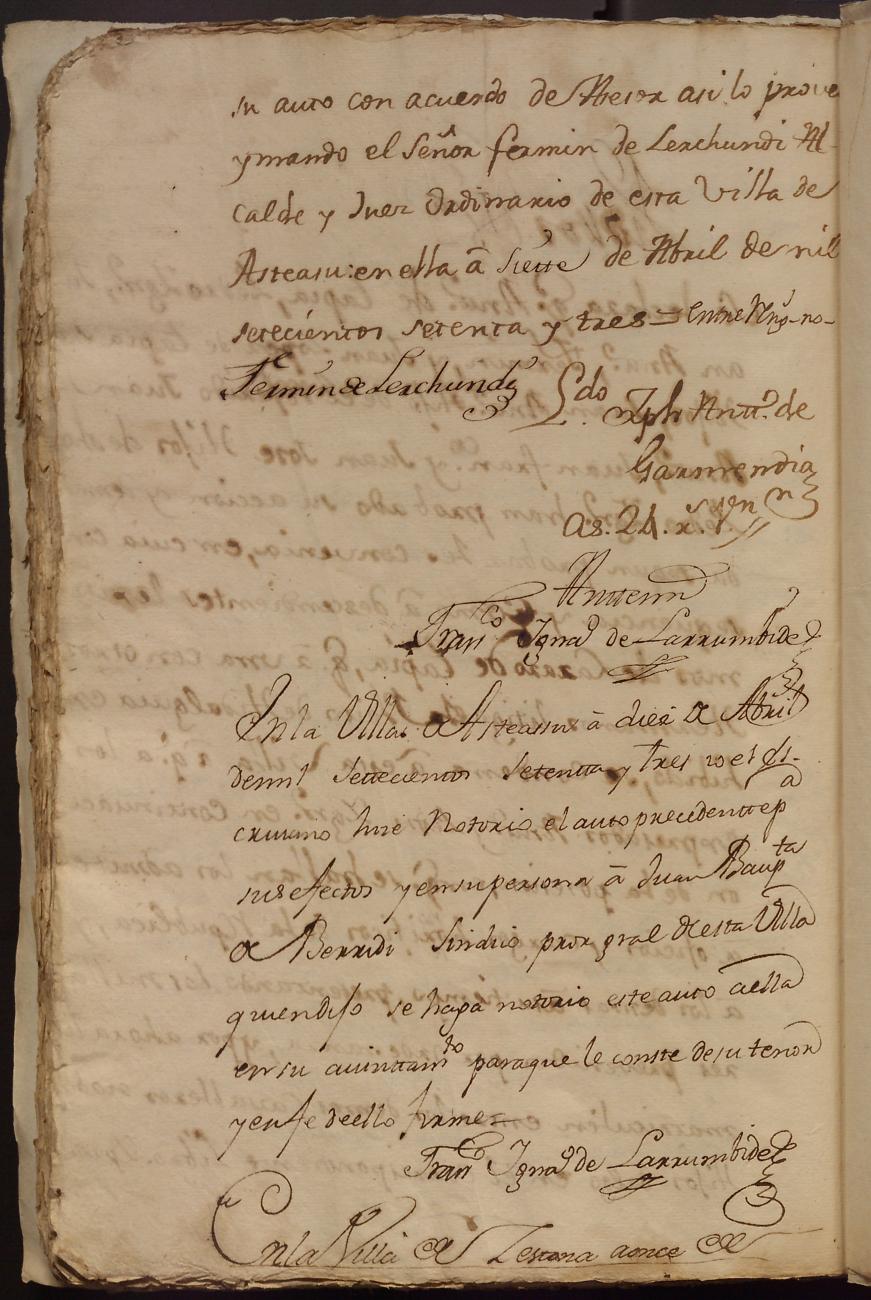 su auto con acuerdo de Asesor asi lo prove
y mando el Señor fermin de Lerchundi Al-
calde y Juez Ordinario de esta Villa de
Asteasu: en ella â siette de Abril de mil
setecientos setenta y tres = entre Rng.s no-
Fermin de Lerchundi
Lzdo Jph Antt.o de
Garmendia
As. 24. r.s Vn
Antemi
Franco Ignaº de Larrumbide
En la Villa de Asteassu â diez de Abril
de mil settecientos setentta y tres io el es-
crivano hice Notorio el auto precedentte pa
sus efectos y en su persona â Juan Bautta
de Berridi Sindico pror gral de esta Villa
quien dijo se haga notorio este auto a ella
en su aiuntamto para que le conste de su tenor
y en fe de ello firme =
Franco Ignaº de Larrumbide
En la Villa de Zestona a once de